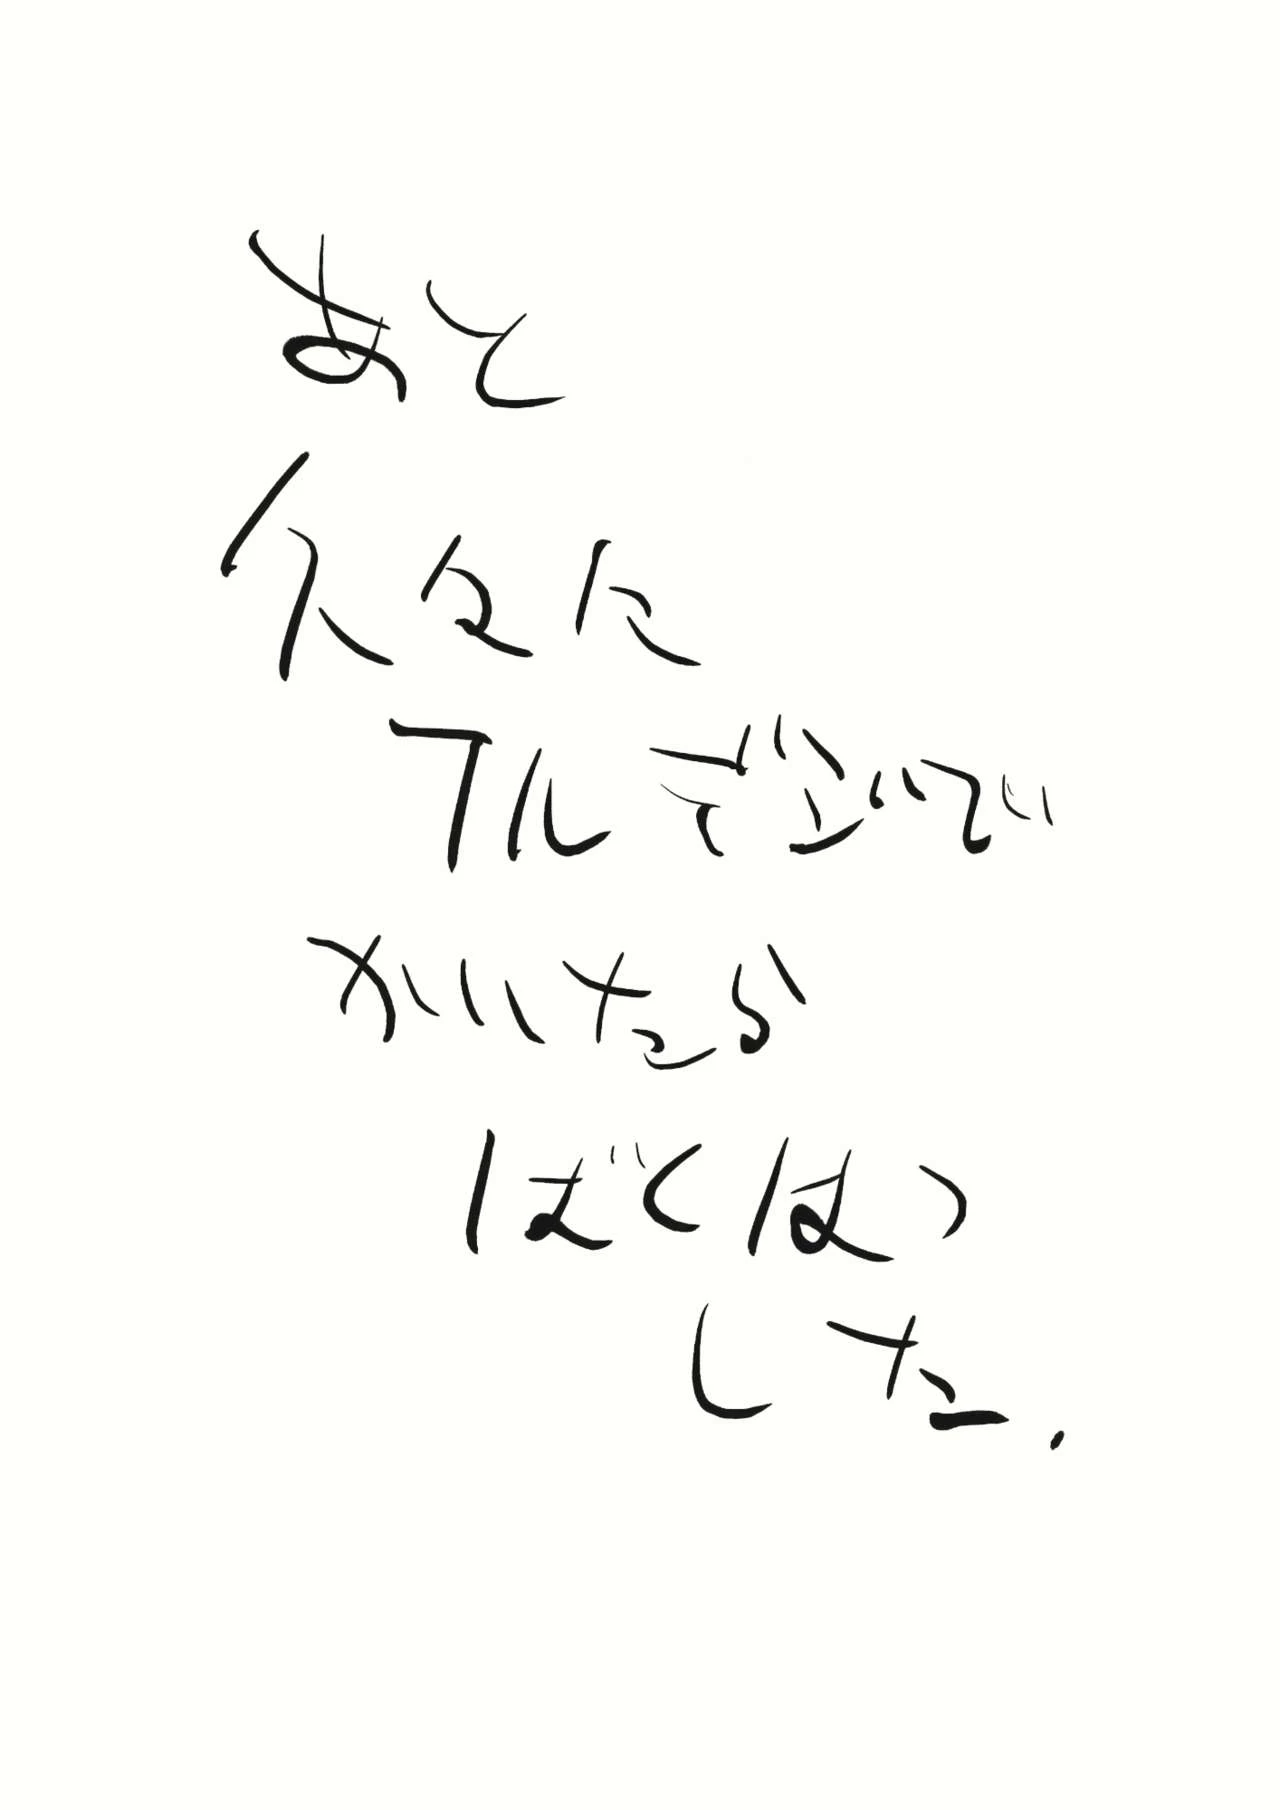 あと
久々に
フルデジいでい
かいたら
ばくはつ
した.